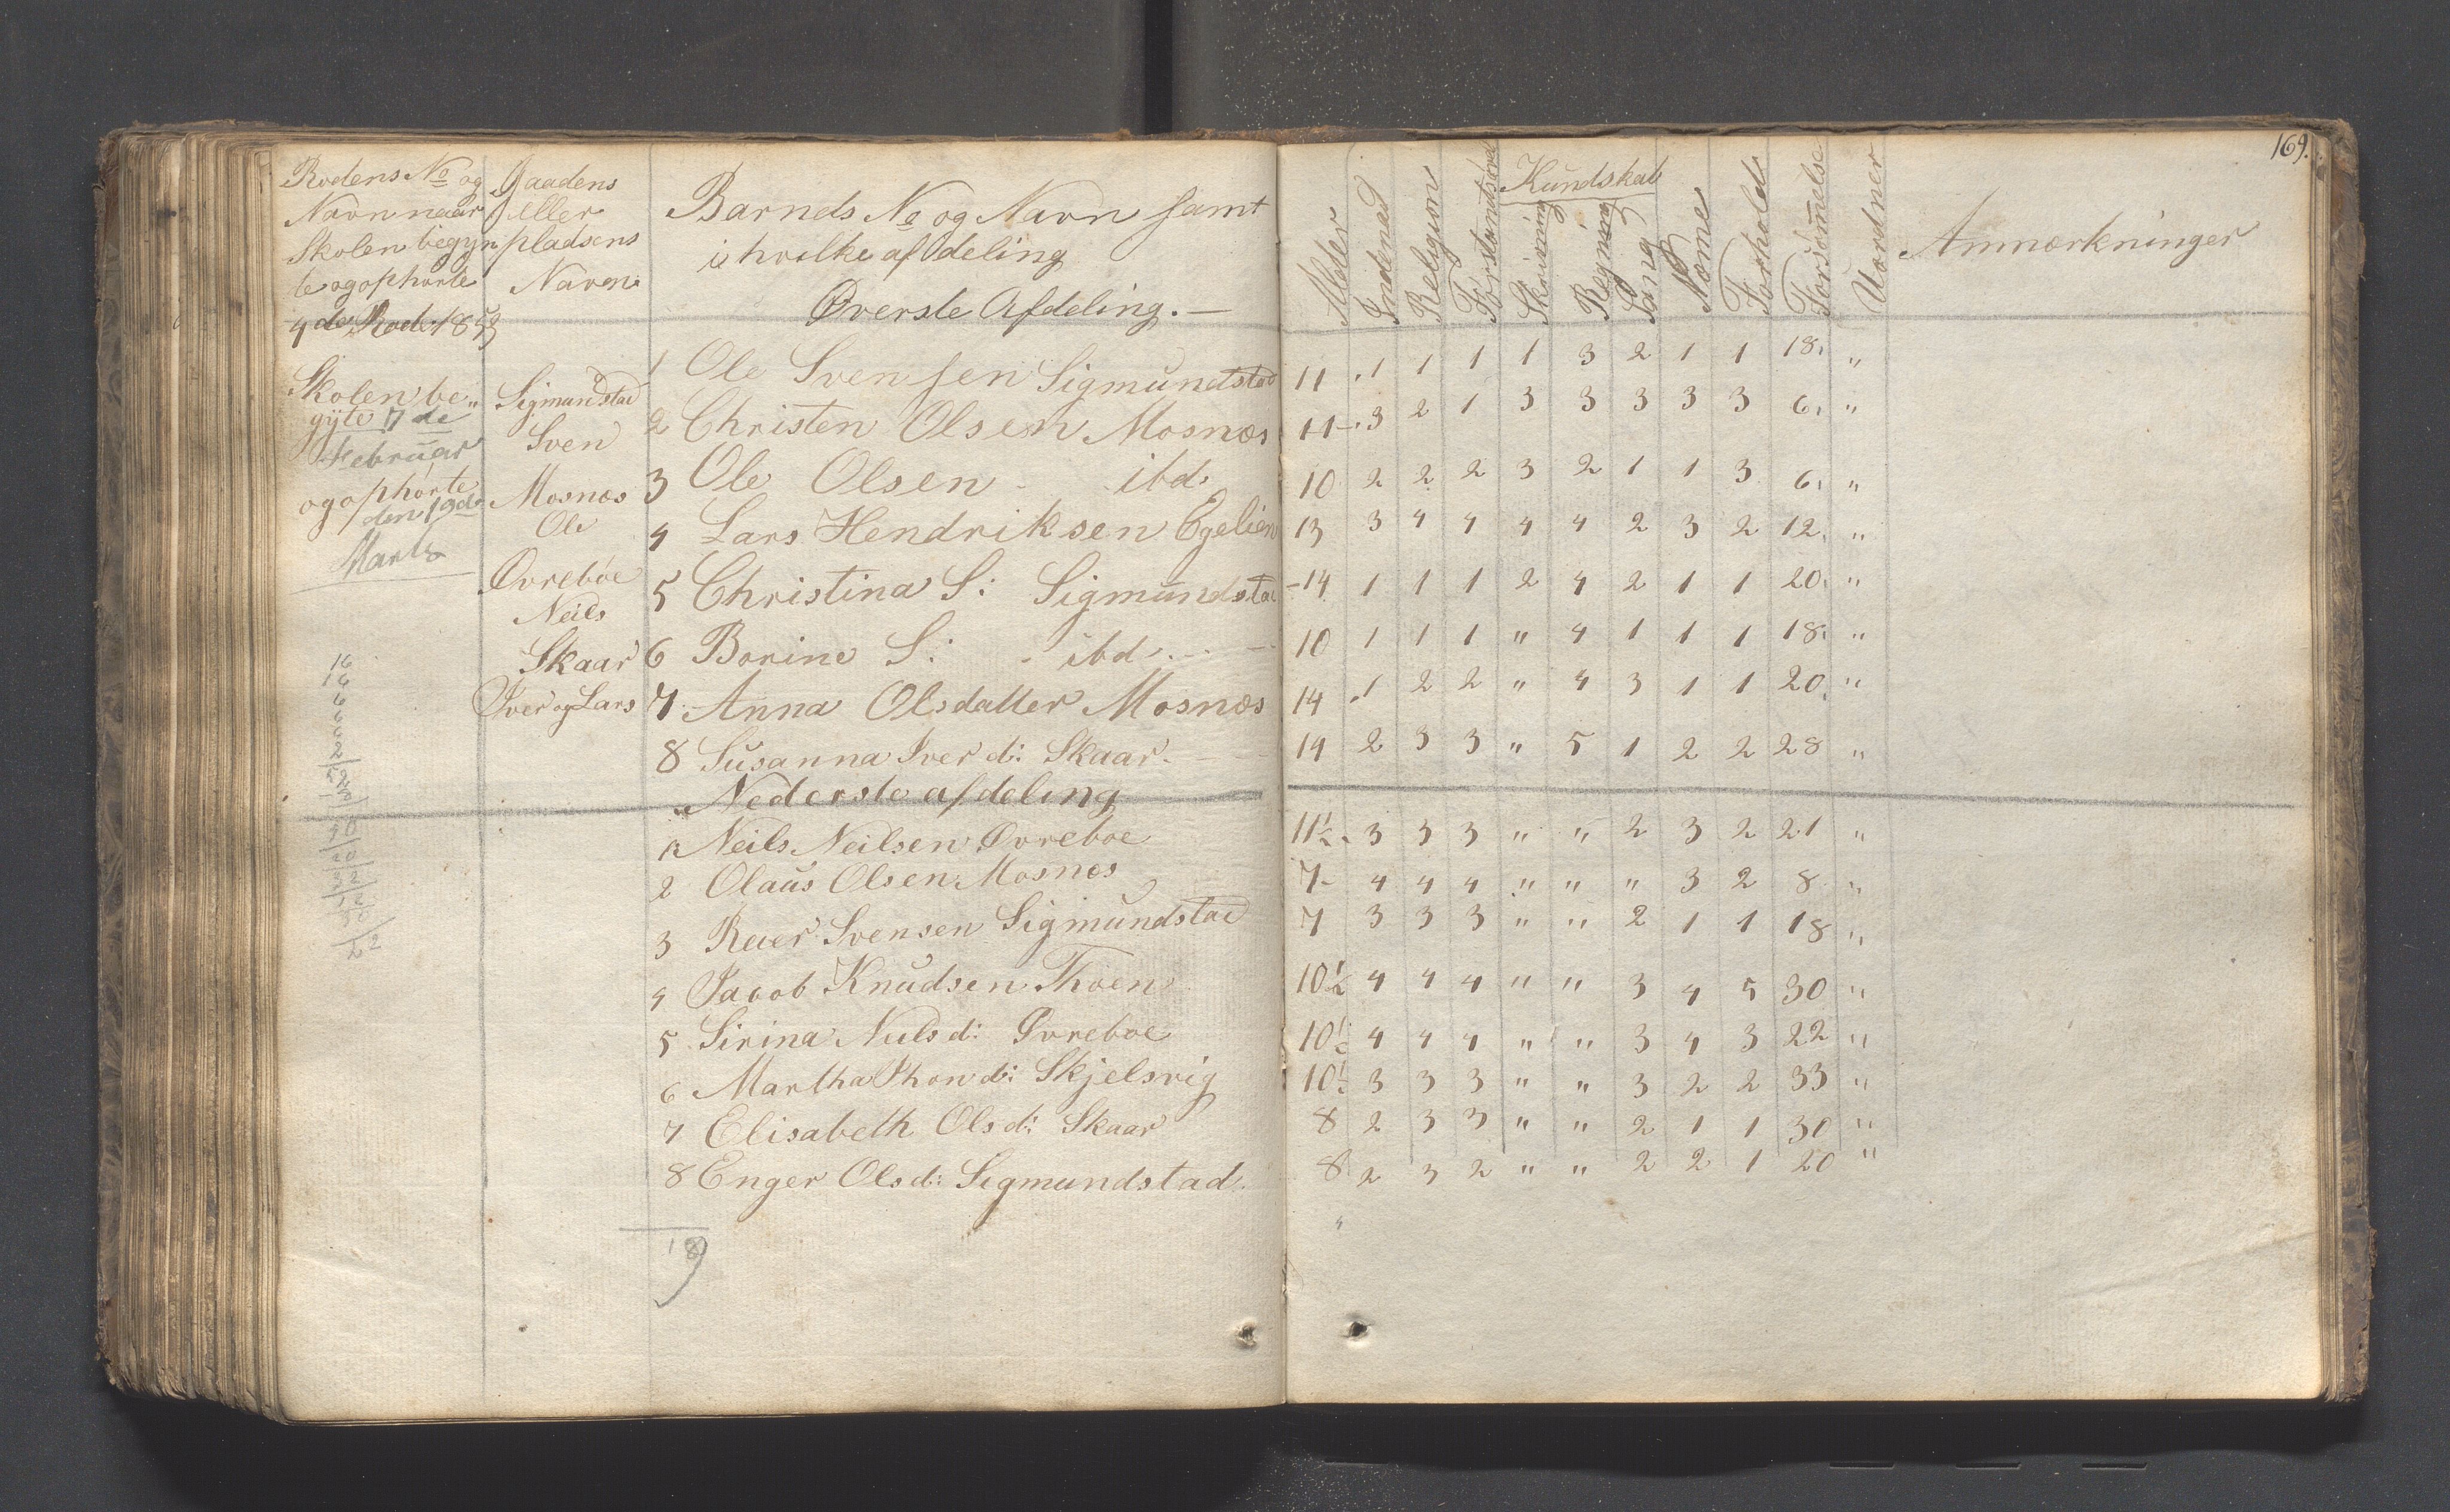 169.
Rodens No og
Navn naar
Skolen begyn
te og ophørte
4de Rode 1853
Gaadens
eller
pladsens
Navn
Barnets No og Navn samt
i hvilke afdeling
Øverste Afdeling. —
Alder Indenad Religion Forstandsøvel Kundskab Skrivning Regning Sang Næme Forhold Forsømelse Uordner Anmærkninger
Skolen be„
gÿte 7de
Februar
og ophørte
den 19de
Marts
Sigmundstad
Sven
Mosnæs
Ole
Øvrebøe
Neils
Skaar
Iver og Lars
1 Ole Svensen Sigmundstad 11 1 1 1 1 3 2 1 1 18. "
2 Christen Olsen Mosnæs 11 3 2 1 3 3 3 3 3 6. "
3 Ole Olsen ibd. 10 2 2 2 3 2 1 1 3 6. "
4 Lars Hendriksen Egelien 13 3 4 4 4 4 2 3 2 12. "
5 Christina S: Sigmundstad 14 1 1 1 2 4 2 1 1 20. "
6 Borine S: ibd. 10 1 1 1 " 4 1 1 1 18. "
7 Anna Olsdatter Mosnæs 14 1 2 2 " 4 3 1 1 20. "
8 Susanna Iver d: Skaar. 14 2 3 3 " 5 1 2 2 28 "
Nederste afdeling
1 Neils Neilsen Øvreboe 11½ 3 3 3 " " 2 3 2 21 "
2 Olaus Olsen Mosnes 7 4 4 4 " " " 3 2 8 "
3 Reier Svensen Sigmundstad 7 3 3 3 " " 2 1 1 18 "
4 Jacob Knudsen Thoen 10½ 4 4 4 " " 3 4 5 30 "
5 Sirina Neils d: Øvreboe 10½ 4 4 4 " " 3 4 3 22 "
6 Martha Thon d: Skjelsvig 10½ 3 3 3 " " 3 2 2 33 "
7 Elisabeth Ols d: Skaar 8 2 3 3 " " 2 1 1 30 "
8 Enger Ols d: Sigmundstad. 8 2 3 2 " " 2 2 1 20 "